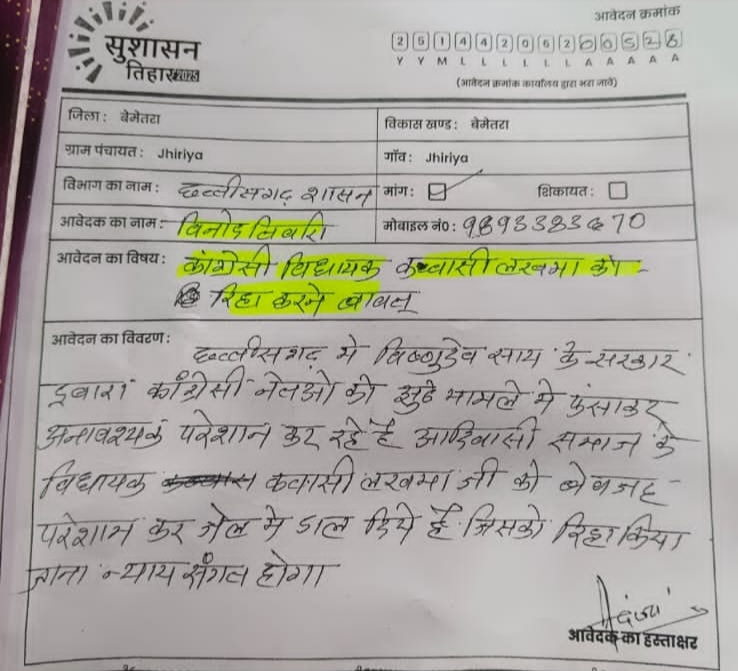 आवेदन क्रमांक
सुशासन
तिहार 2025
2 5 1 4 4 2 0 6 2 0 0 5 2 8
Y Y M L L L L L L A A A A A
(आवेदन क्रमांक कार्यालय द्वारा भरा जावे)
जिला: बेमेतरा
विकास खण्ड: बेमेतरा
ग्राम पंचायत: Jhiriya
गाँव: Jhiriya
विभाग का नाम: छत्तीसगढ़ शासन
मांग:
शिकायत:
आवेदक का नाम: विनोद तिवारी
मोबाइल नं०: 9893383670
आवेदन का विषय: कांग्रेसी विधायक कवासी लखमा को -
रिहा करने बाबत्
आवेदन का विवरण:
छत्तीसगढ़ में विष्णुदेव साय के सरकार
द्वारा काँग्रेसी नेताओं को झुठे मामले में फंसाकर
अनावश्यक परेशान कर रहे हैं आदिवासी समाज के
विधायक कवासी लखमा जी को बेवजह -
परेशान कर जेल में डाल दिये हैं जिसको रिहा किया
जाना न्याय संगत होगा
आवेदक का हस्ताक्षर